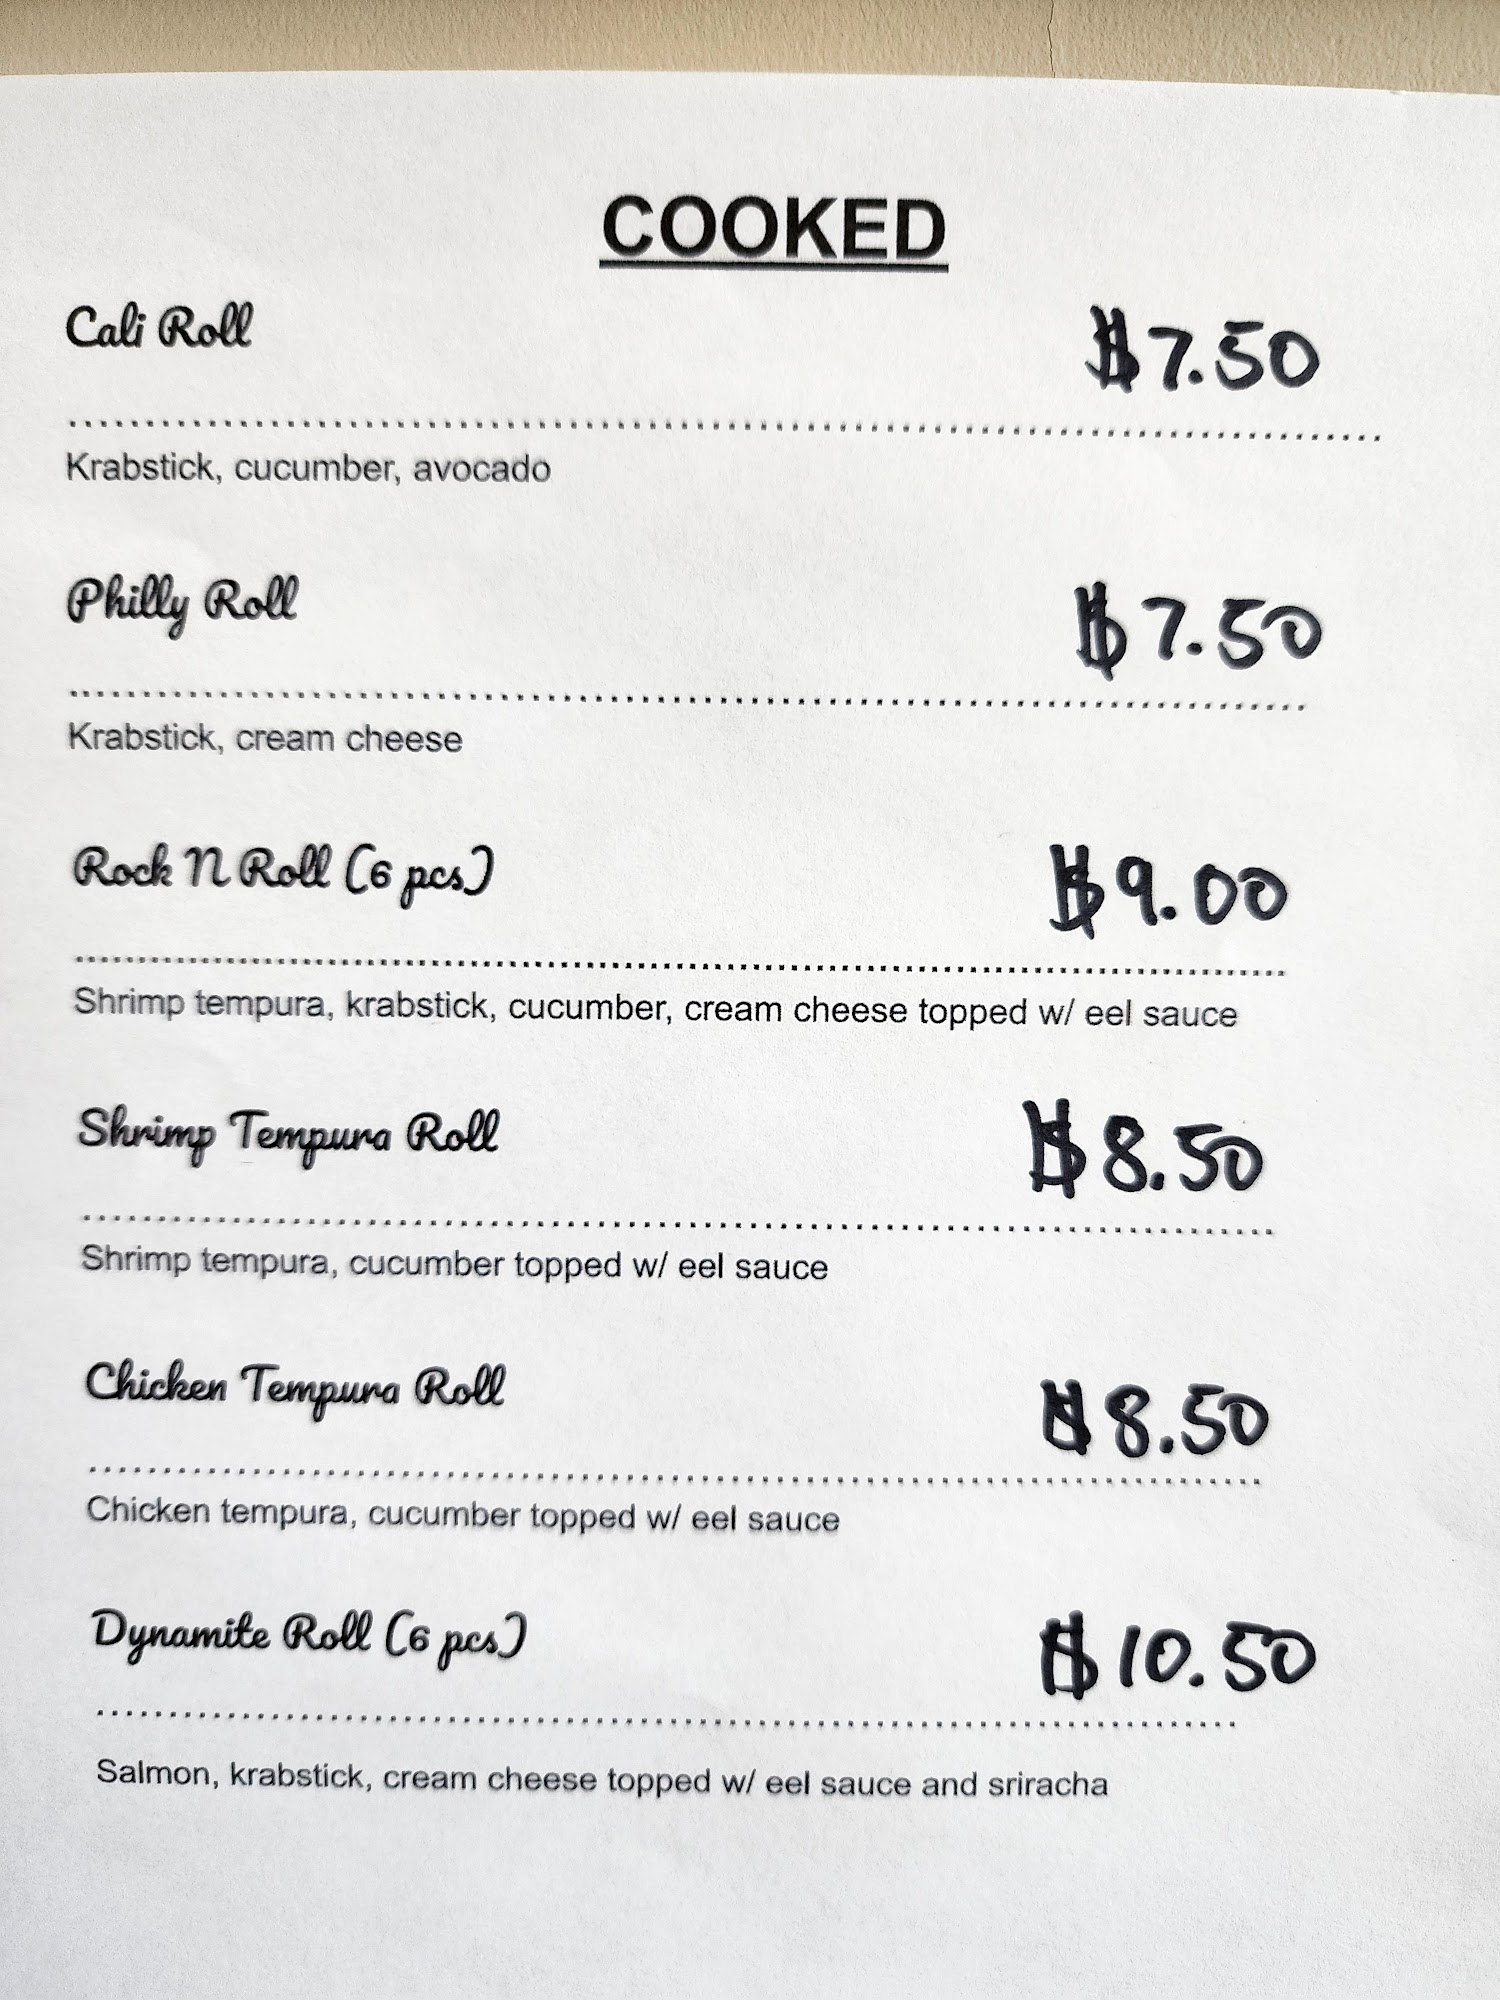 COOKED
Cali Roll $7.50
Krabstick, cucumber, avocado
Philly Roll $7.50
Krabstick, cream cheese
Rock N Roll (6 pcs) $9.00
Shrimp tempura, krabstick, cucumber, cream cheese topped w/ eel sauce
Shrimp Tempura Roll $8.50
Shrimp tempura, cucumber topped w/ eel sauce
Chicken Tempura Roll $8.50
Chicken tempura, cucumber topped w/ eel sauce
Dynamite Roll (6 pcs) $10.50
Salmon, krabstick, cream cheese topped w/ eel sauce and sriracha